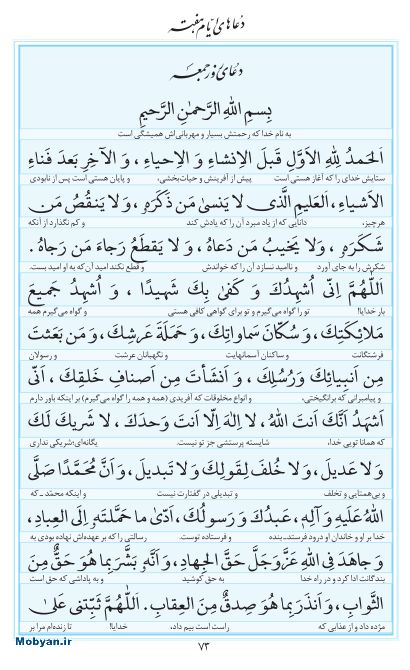 دعاهای ایام هفته
دعای روز جمعه
بِسمِ اللهِ الرَّحمٰنِ الرَّحیمِ
به نام خدا که رحمتش بسیار و مهربانی‌اش همیشگی است
اَلحَمدُ لِلّٰهِ الاَوَّلِ قَبلَ الاِنشاءِ وَ الاِحیاءِ، وَ الآخِرِ بَعدَ فَناءِ
ستایش خدای را که آغاز هستی است پیش از آفرینش و حیات‌بخشی، و پایان هستی است پس از نابودی
الاَشیاءِ، اَلعَلیمِ الَّذی لا یَنسیٰ مَن ذَکَرَهُ، وَ لا یَنقُصُ مَن
هرچیز. دانایی که از یاد مبرد آن را که یادش کند و کم نگذارد از آنکه
شَکَرَهُ، وَلا یَخیبُ مَن دَعاهُ، وَ لا یَقطَعُ رَجاءَ مَن رَجاهُ.
شکرش را به جای آورد و ناامید نسازد آن را که خواندش و قطع نکند امید آن که به او امید بست.
اَللّٰهُمَّ اِنّی اُشهِدُكَ وَ کَفیٰ بِكَ شَهیدًا، وَ اُشهِدُ جَمیعَ
بار خدایا! تو را گواه می‌گیرم و تو برای گواهی کافی هستی و گواه می‌گیرم همه
مَلائِکَتِكَ، وَ سُکّانَ سَماواتِكَ، وَ حَمَلَةَ عَرشِكَ، وَ مَن بَعَثتَ
فرشتگانت و ساکنان آسمانهایت و نگهبانان عرشت و رسولان
مِن اَنبِیائِكَ وَ رُسُلِكَ، وَ اَنشَأتَ مِن اَصنافِ خَلقِكَ، اَنّی
و پیامبرانی که برانگیختی، و انواع مخلوقات که آفریدی (همه و همه را گواه می‌گیرم) بر اینکه باور دارم
اَشهَدُ اَنَّكَ اَنتَ اللهُ، لا اِلٰهَ اِلّا اَنتَ وَحدَكَ، لا شَریكَ لَكَ
که همانا تویی خدا، شایسته پرستشی جز تو نیست. یگانه‌ای؛شریکی نداری
وَلا عَدیلَ، وَ لا خُلفَ لِقَولِكَ وَ لا تَبدیلَ، وَ اَنَّ مُحَمَّدًا صَلَّی
و بی‌همتایی و تخلف و تبدیلی در گفتارت نیست و اینکه محمّد ـ که
اللهُ عَلَیهِ وَ آلِهِ، عَبدُكَ وَ رَسولُكَ، اَدّیٰ ما حَمَّلتَهُ اِلَی العِبادِ،
خدا بر او و خاندان او درود فرستد_بنده و فرستاده توست. رسالتی را که بر عهده‌اش نهاده بودی به
وَ جاهَدَ فِی اللهِ عَزَّ وَ جَلَّ حَقَّ الجِهادِ، وَ اَنَّهُ بَشَّرَ بِما هُوَ حَقٌّ مِنَ
بندگانت ادا کرد و در راه خدا به حق کوشید و به پاداشی که حق است
الثَّوابِ، وَ اَنذَرَ بِما هُوَ صِدقٌ مِنَ العِقابِ. اَللّٰهُمَّ ثَبِّتنی عَلیٰ
مژده داد و از عذابی که راست است بیم داد، خدایا! تا زنده‌ام مرا بر
۷۳
Mobyan.ir